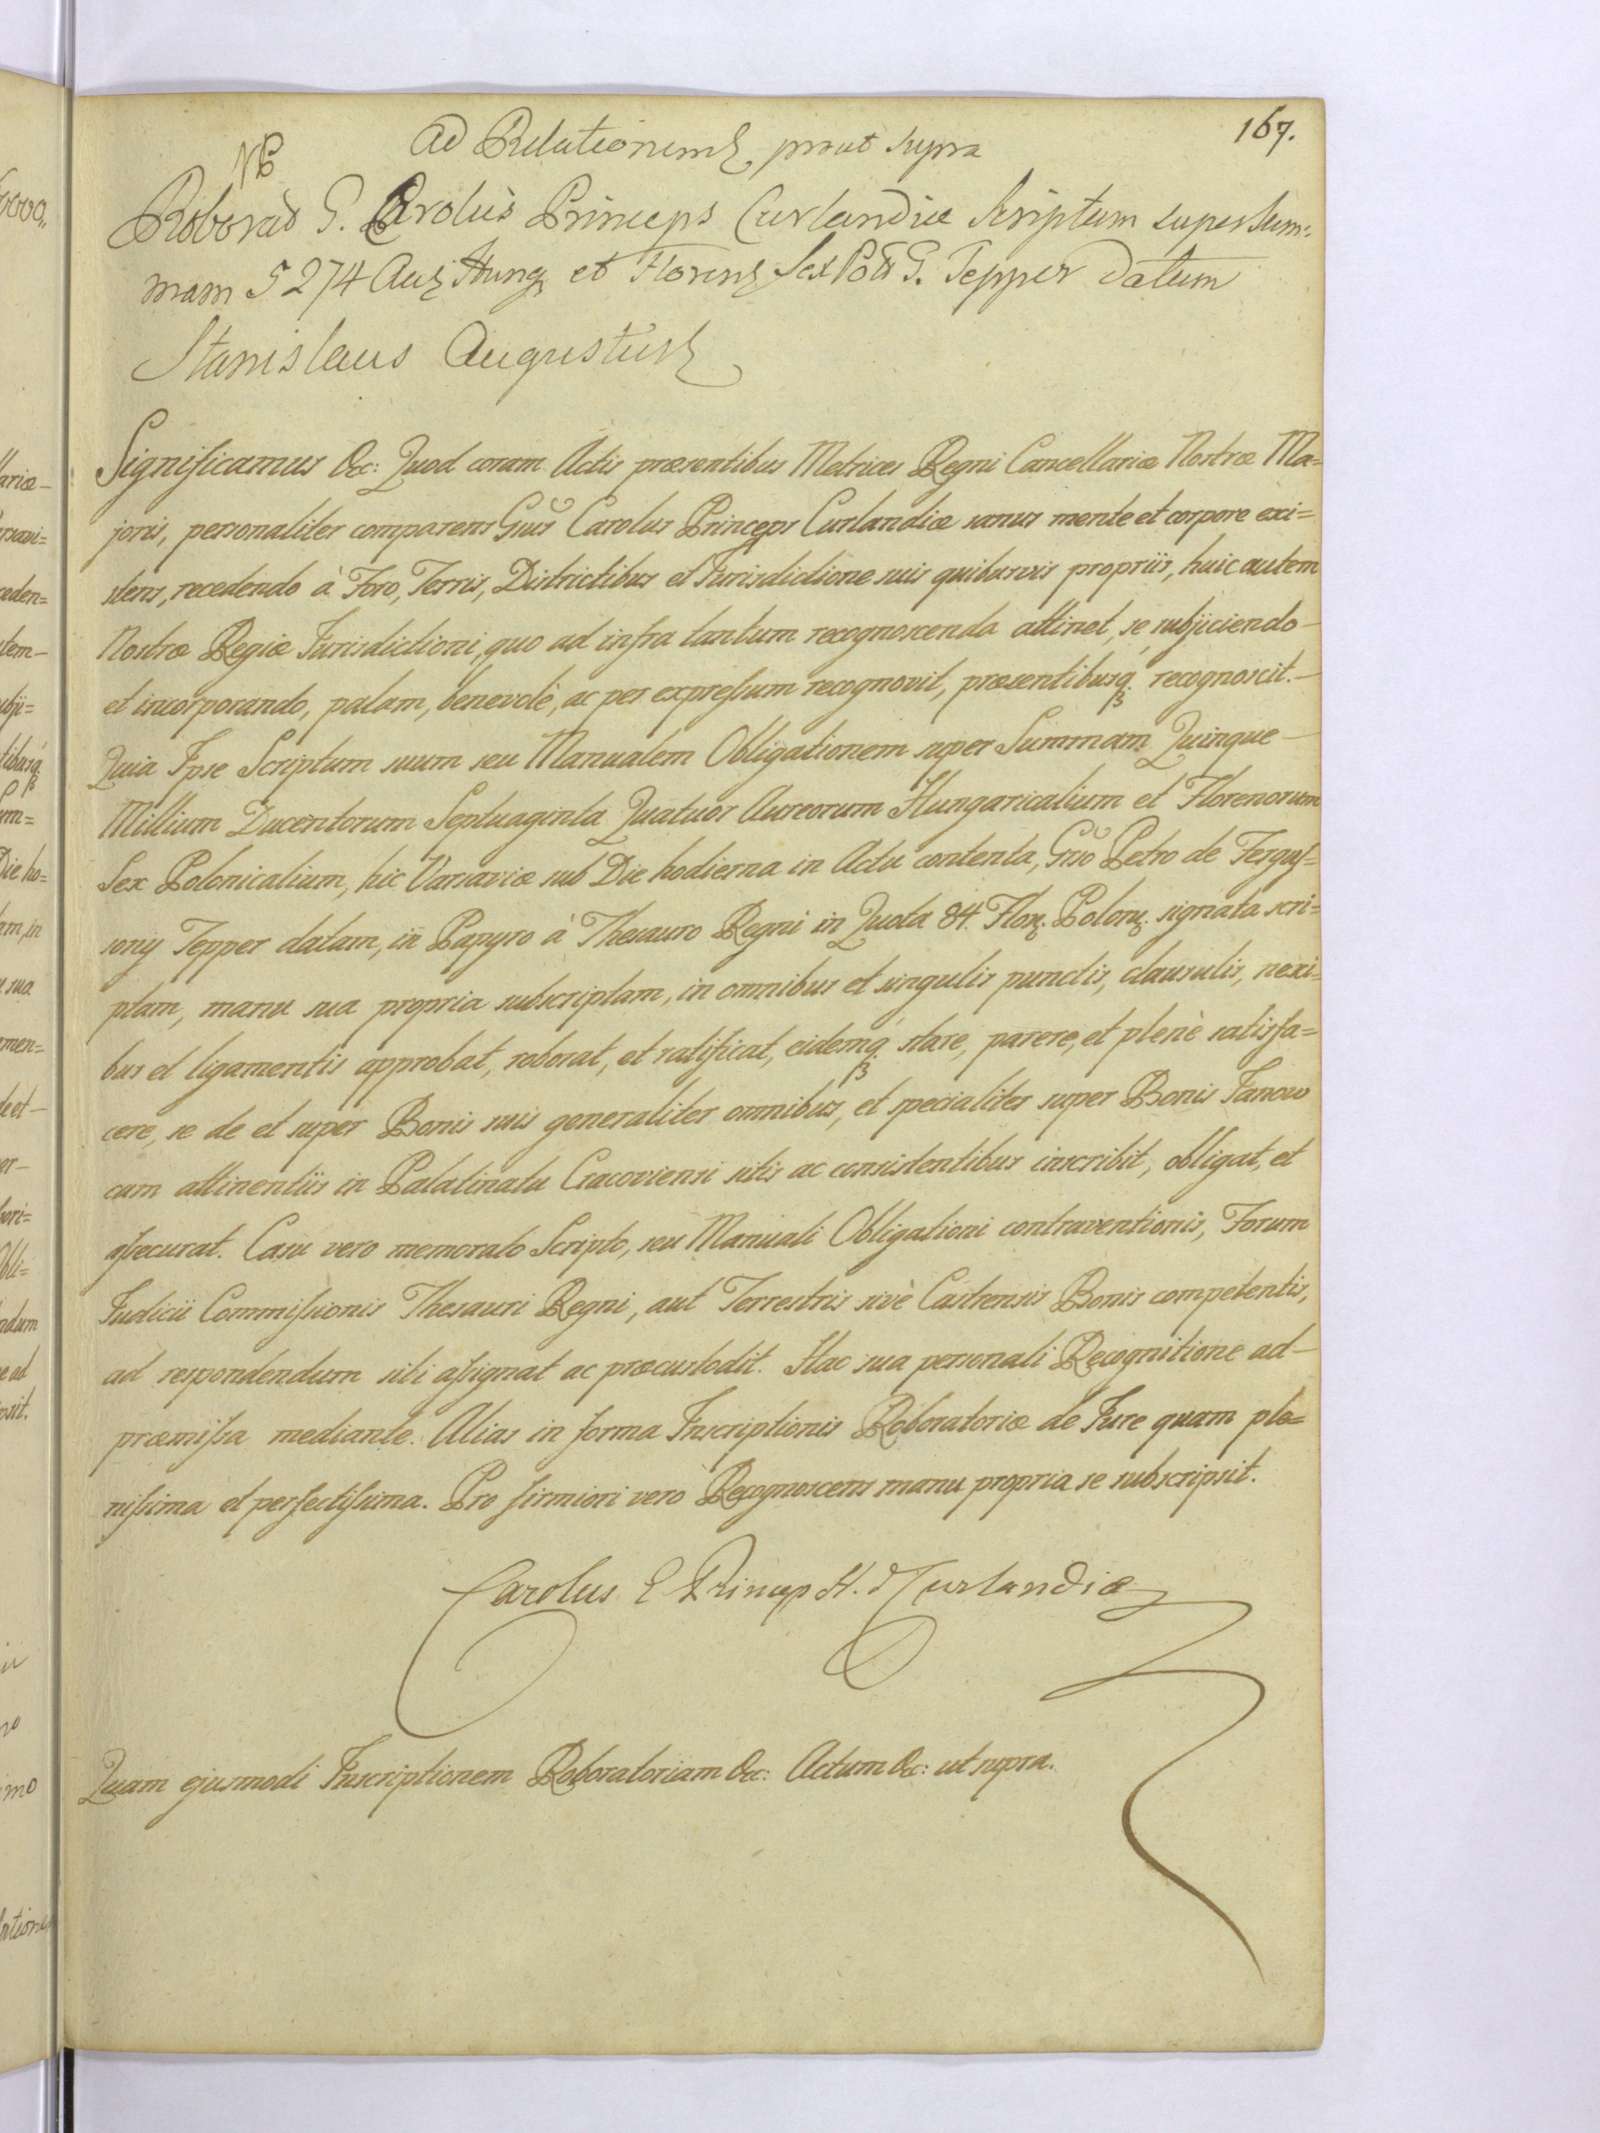 167.
Ad Relationem prout supra
NB
Roborat G. Carolus Princeps Curlandiæ Scriptum super Sum:
mam 5274 Aur Hung et Floren Sex Pol G. Tepper Datum
Stanislaus Augustus
Significamus &c: Quod coram Actis præsentibus Metrices Regni Cancellariæ Nostræ Ma=
joris, personaliter comparens Gnus Carolus Princeps Curlandiæ sanus mente et corpore exi=
stens, recedendo à Foro, Terris, Districtibus et Jurisdictione suis quibusvis propriis, huic autem
Nostræ Regiæ Jurisdictioni, quo ad infra tantum recognoscenda attinet, se subjiciendo
et incorporando, palam, benevolè, ac per expreſsum recognovit, præsentibusq. recognoscit.
Quia Ipse Scriptum suum seu Manualem Obligationem super Summam Quinque
Millium Ducentorum Septuaginta Quatuor Aureorum Hungaricalium et Florenorum
Sex Polonicalium, hic Varsaviæ sub Die hodierna in Actu contenta, Gno Petro de Ferguſ=
sony Tepper datam, in Papyro à Thesauro Regni in Quota 84. Flor. Polon. signata scri=
ptam, manu sua propria subscriptam, in omnibus et singulis punctis, clausulis, nexi=
bus et ligamentis approbat, roborat, et ratificat, eidemq. stare, parere, et plenè satisfa=
cere, se de et super Bonis suis generaliter omnibus, et specialiter super Bonis Janow
cum attinentiis in Palatinatu Cracoviensi sitis ac consistentibus inscribit, obligat, et
aſsecurat. Casu vero memorato Scripto, seu Manuali Obligationi contraventionis, Forum
Judicii Commiſsionis Thesauri Regni, aut Terrestris sivè Castrensis Bonis competentis,
ad respondendum sibi aſsignat ac præcustodit. Hac sua personali Recognitione ad
præmiſsa mediante. Alias in forma Inscriptionis Roboratoriæ de Jure quam ple=
niſsima et perfectiſsima. Pro firmiori vero Recognoscens manu propria se subscripsit.
Carolus Princeps Curlandiæ
Quam ejusmodi Inscriptionem Roboratoriam &c: Actum &c: ut supra.